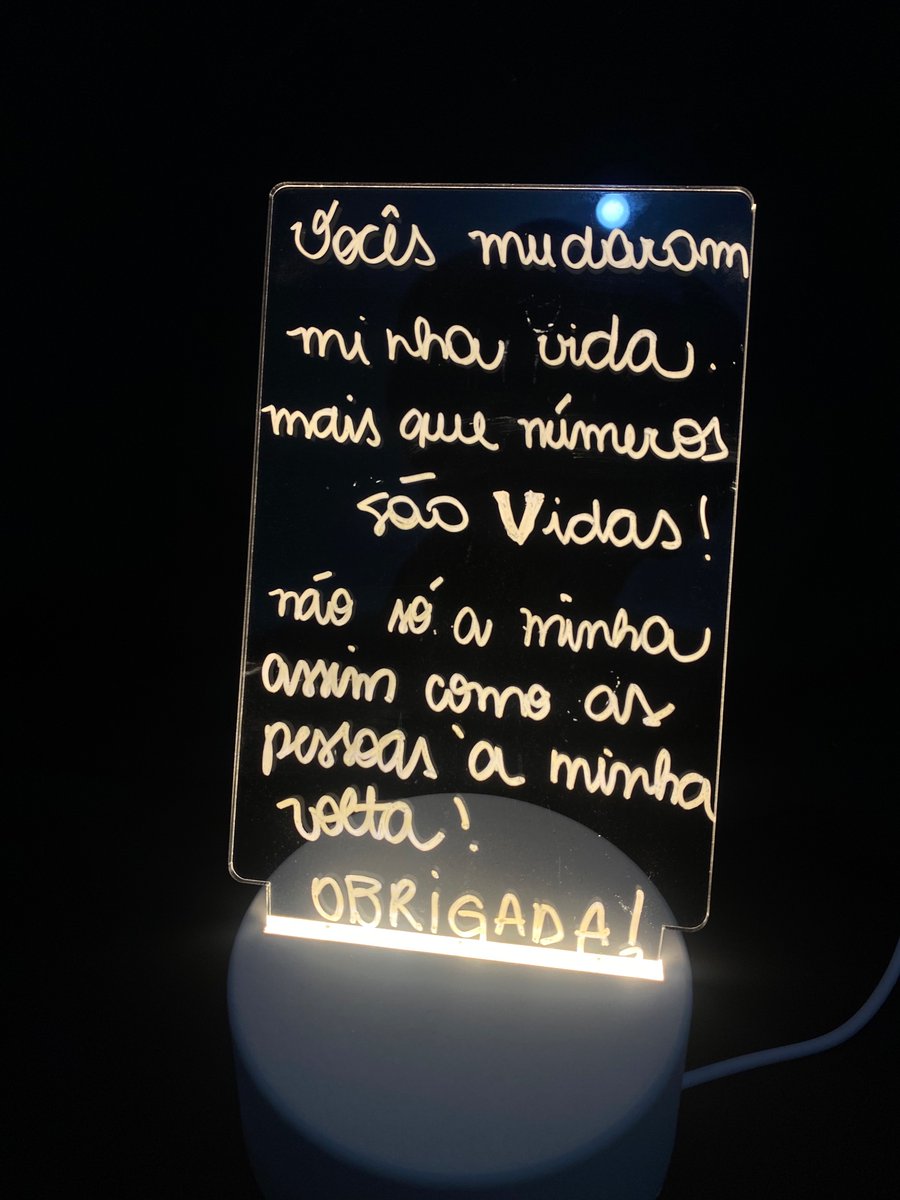 Vocês mudaram
minha vida.
mais que números
são Vidas!
não só a minha
assim como as
pessoas à minha
volta!
OBRIGADA!